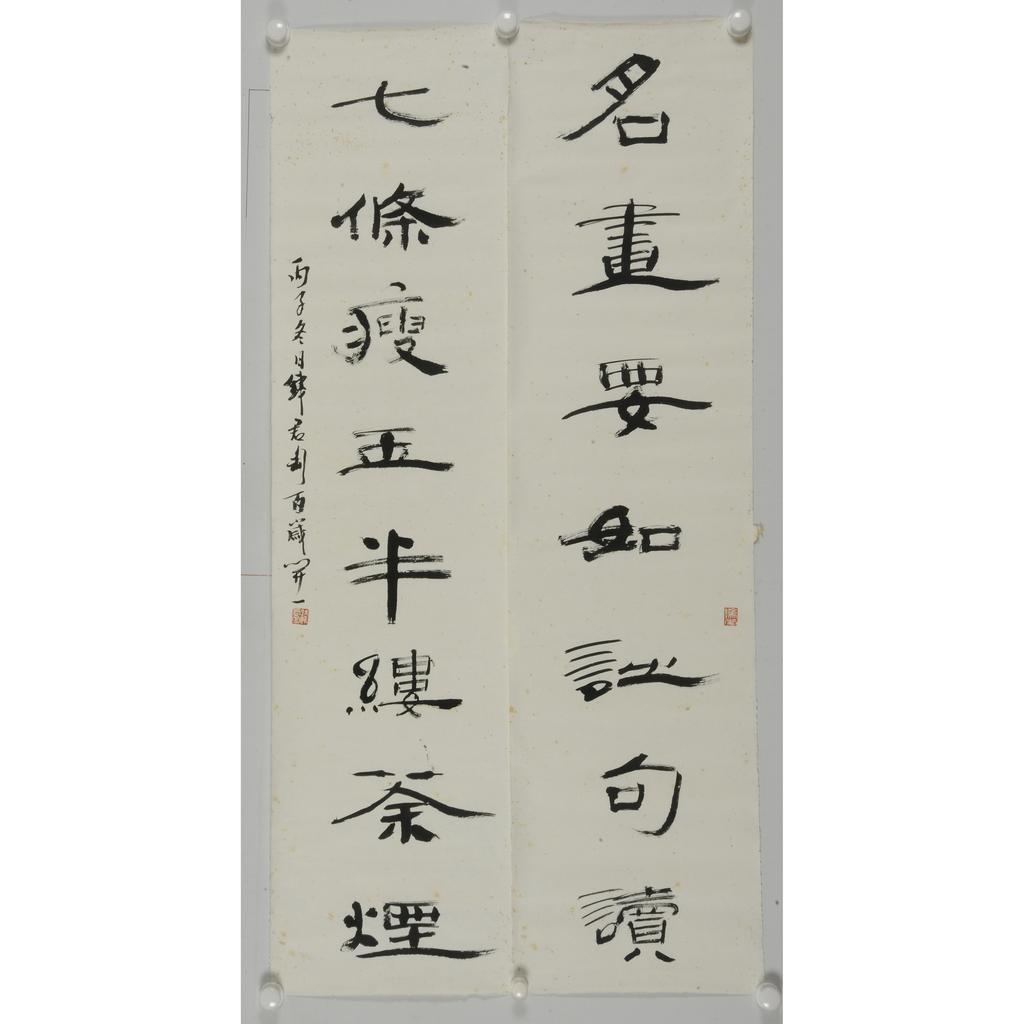 名畫要如詩句讀
七條瘦玉半縷茶煙
丙子冬日 君 百歲開一